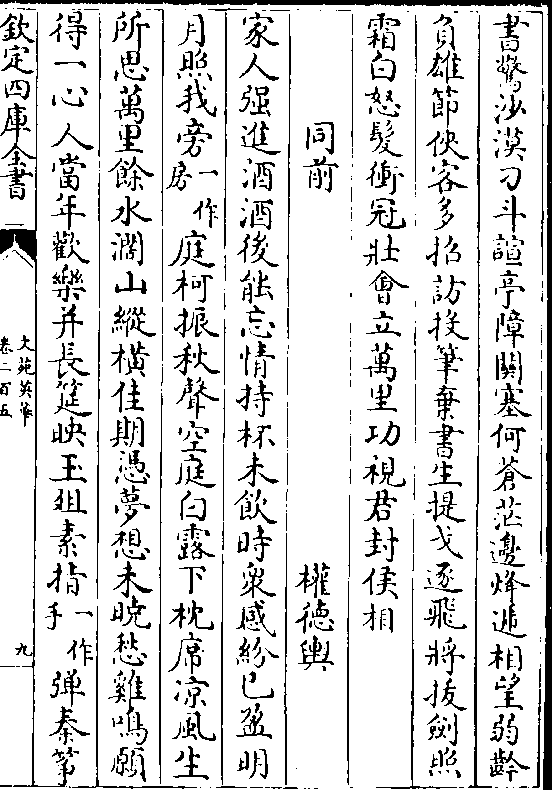 書驚沙漠刁斗諠亭障關塞何蒼茫邊烽遞相望弱齡
負雄節俠客多招訪投筆棄書生提戈逐飛將拔劍照
霜白怒髮衝冠壯會立萬里功視君封侯相
同前 權德輿
家人强進酒酒後能忘情持杯未飲時衆感紛已盈明
月照我旁一作房庭柯振秋聲空庭白露下枕席凉風生
所思萬里餘水濶山縱横佳期憑夢想未曉愁雞鳴願
得一心人當年歡樂并長筵映玉俎素指一作手弹秦筝
欽定四庫全書
文苑英華
卷二百五
九